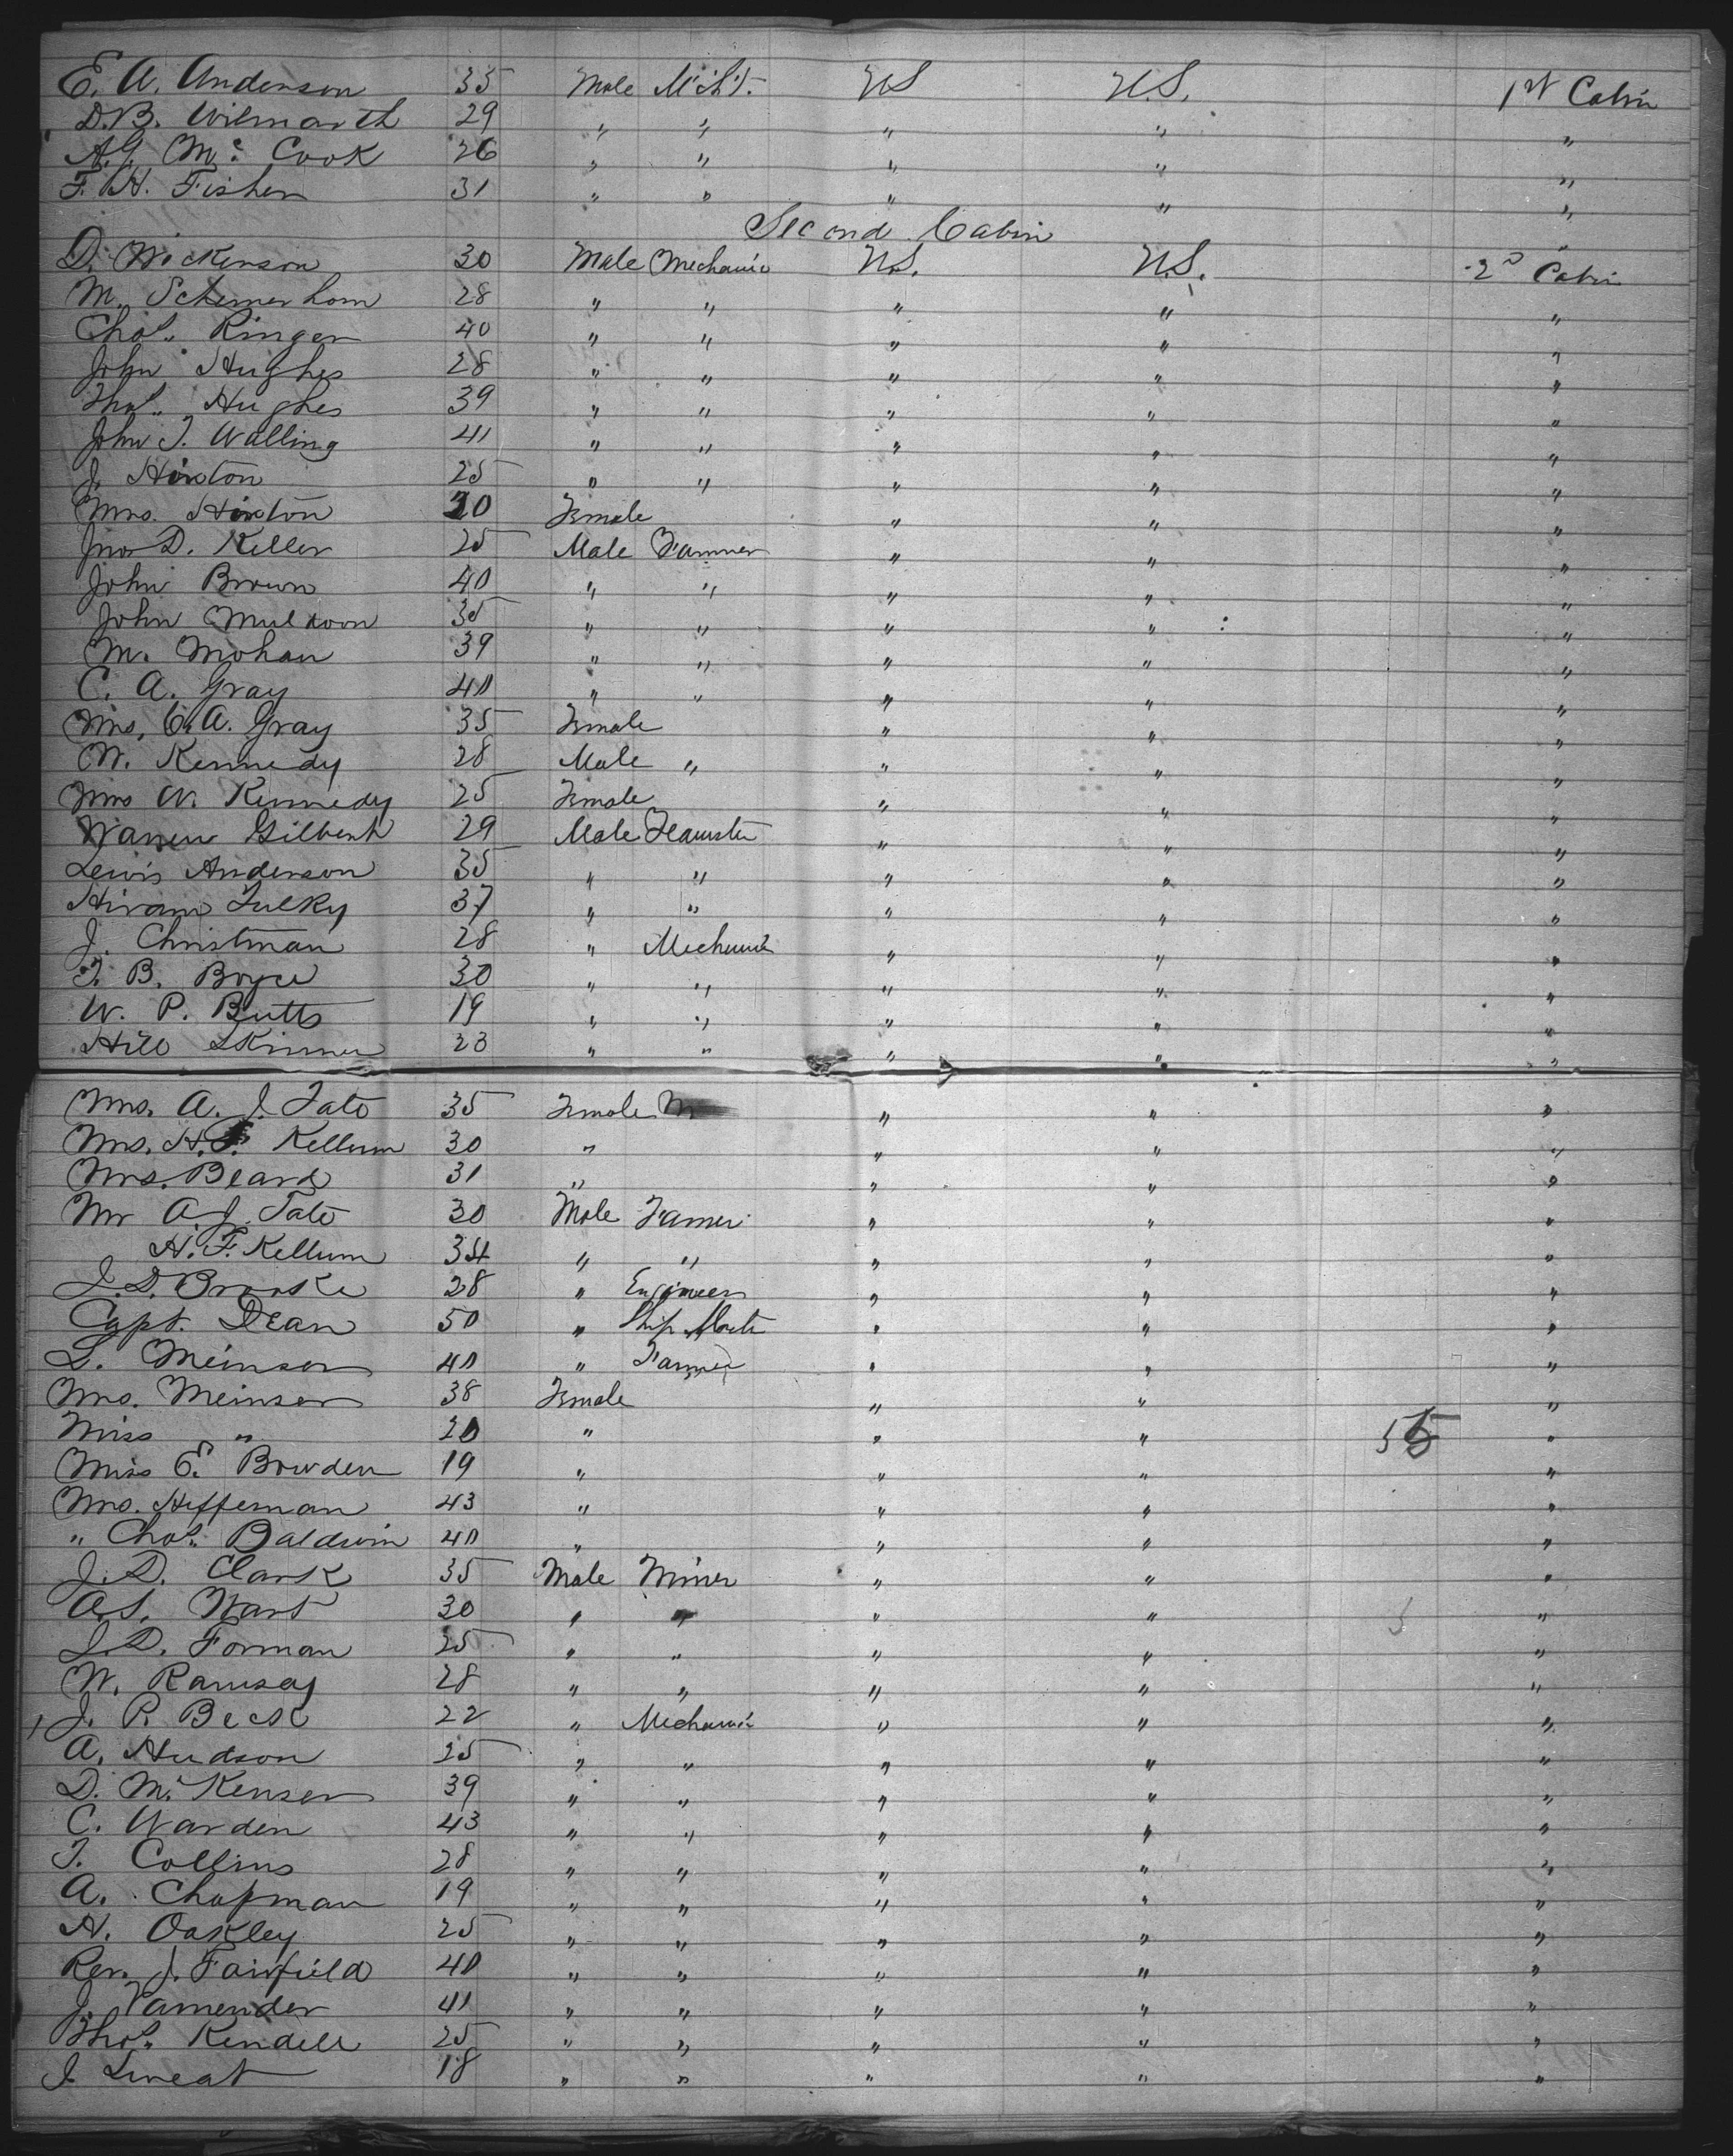 E. A. Anderson 35 Male Mcht. US U.S. 1st Cabin
D.B. Wilmarth 29 " " " " "
A.G. Mc Cook 26 " " " " "
F. H. Fisher 31 " " " " "
Second Cabin "
D. Wickerson 30 Male Mechanic U.S. U.S. 2d Cabin
M. Schemerhorn 28 " " " " "
Chas. Ringer 40 " " " " "
John Hughes 28 " " " " "
Thos. Hughes 39 " " " " "
John T. Walling 41 " " " " "
J. Hinton 25 " " " " "
Mrs. Hinton 20 Female " " "
Jno D. Keller 25 Male Farmer " " "
John Brown 40 " " " " "
John Muldoon 35 " " " " "
M. Mohan 39 " " " " "
C. A. Gray 40 " " " " "
Mrs. C. A. Gray 35 Female " " "
W. Kennedy 28 Male " " " "
Mrs W. Kennedy 25 Female " " "
Warren Gilbert 29 Male Teamster " " "
Lewis Anderson 35 " " " " "
Hiram 37 " " " " "
J. Christman 28 " Mechanic " " "
T. B. Boyce 30 " " " " "
W. P. Butts 19 " " " " "
Hill Skinner 23 " " " " "
Mrs. A. J. Tate 35 Female M " " "
Mrs. H.F. Kellum 30 " " " "
Mrs. Beard 31 " " " "
Mr A. J. Tate 30 Male Farmer " " "
H. F. Kellum 34 " " " " "
J. D. 28 " Engineer " " "
Capt. Dean 50 " Ship " " "
L. Meinson 40 " Farmer " " "
Mrs. Meinson 38 Female " " "
Miss " 20 " " " "
Miss E. Bowden 19 " " " "
Mrs. Heffernan 43 " " " "
" Chas. Baldwin 40 " " " "
J. D. Clark 35 Male Miner " " "
A.S. Wart 30 " " " " "
J. D. Forman 25 " " " " "
W. Ramsay 28 " " " " "
J. P. Beck 22 " Mechanic " " "
A. Hudson 25 " " " " "
D. McKenser 39 " " " " "
C. Warden 43 " " " " "
T. Collins 28 " " " " "
A. Chapman 19 " " " " "
H. Oakley 25 " " " " "
Rev. J. Fairfield 40 " " " " "
J. 41 " " " " "
Thos. Kendell 25 " " " " "
J. 18 " " " " "